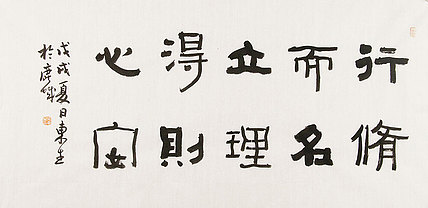 行脩
而名
立理
得則
心安
戊戌夏日東生
於